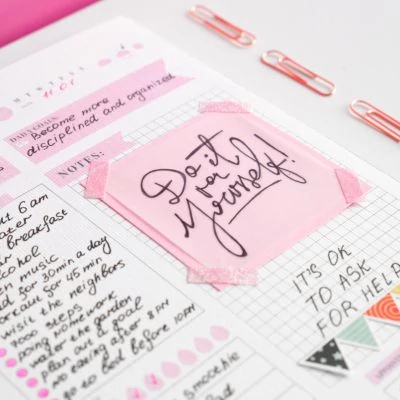 M T W T F S S
11.01
DAILY GOALS:
Become more
disciplined and organized
NOTES:
Do it
for
yourself!
6 am
breakfast
music
for 30 min a day
for 45 min
visit the neighbors
7000 steps
doing homework
water the garden
plan out a goal
no eating after 8 PM
go to bed before 10 PM
IT'S OK
TO ASK
FOR HELP
smoothie